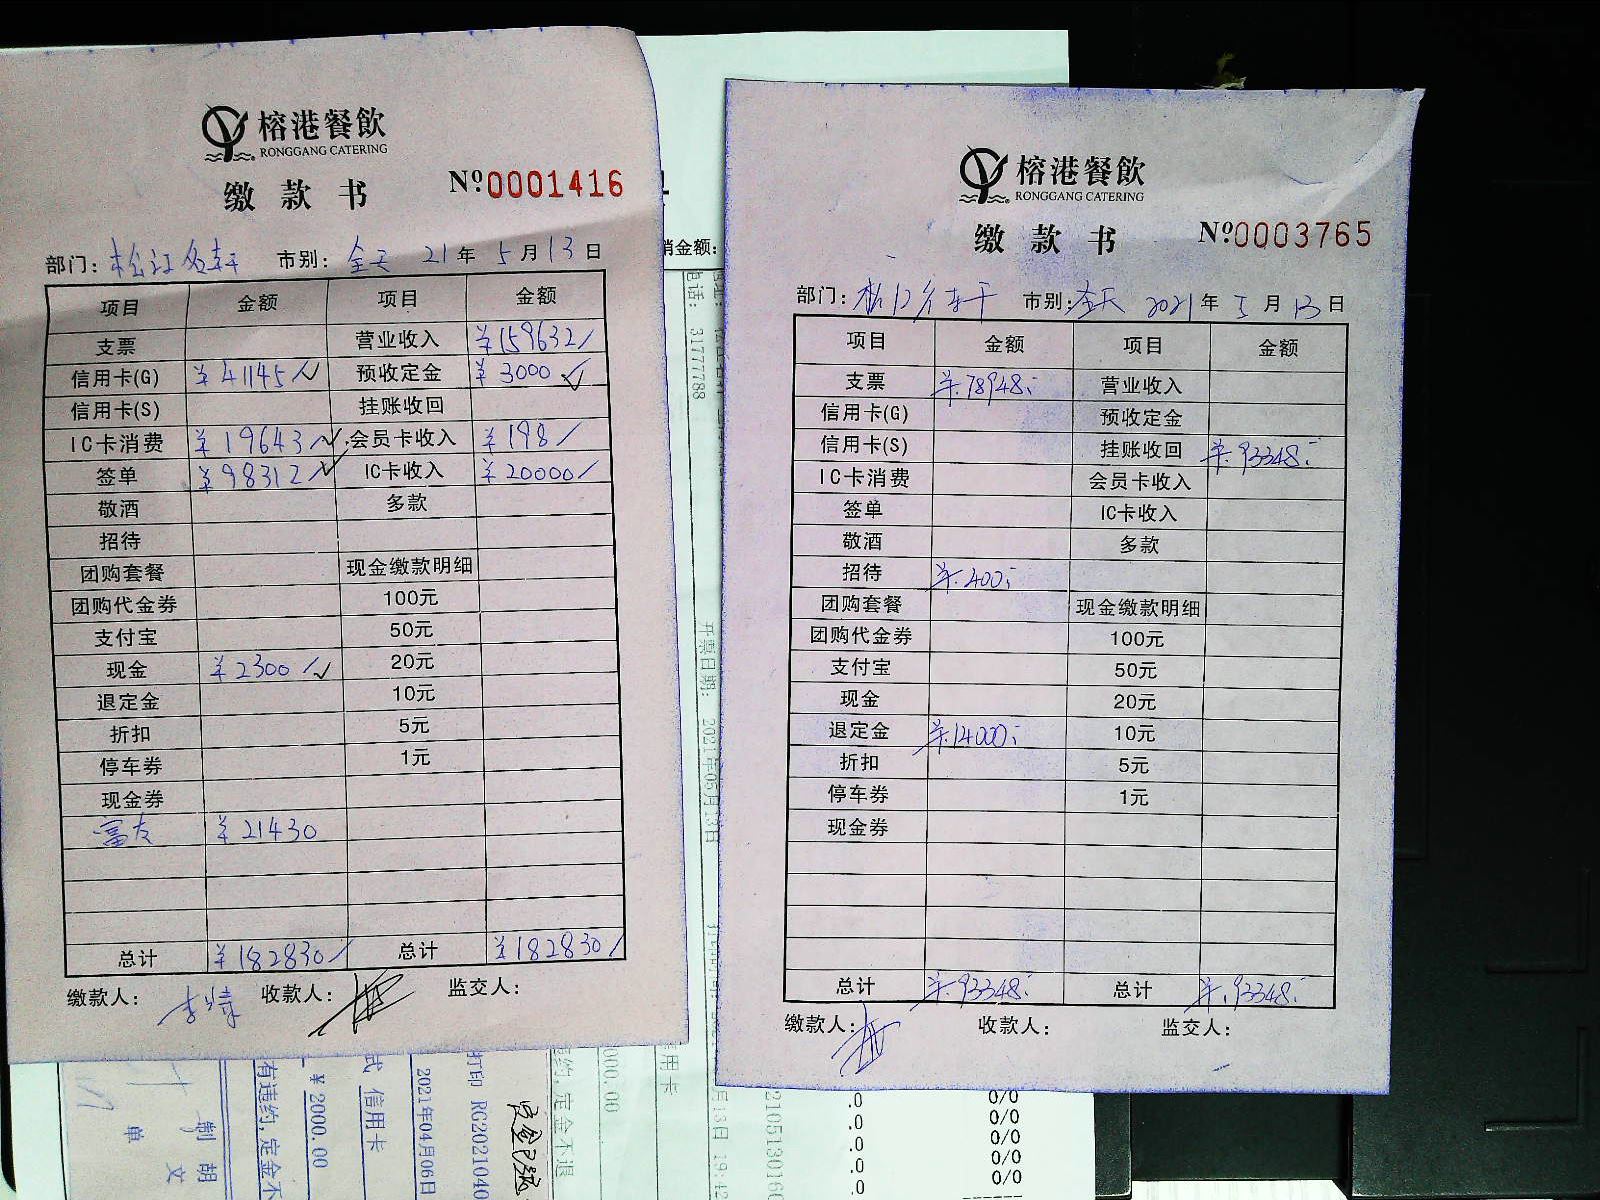 榕港餐飲
RONGGANG CATERING
缴款书 Nº0001416
部门: 松江名轩 市别: 全天 21年5月13日
项目 金额 项目 金额
支票 营业收入 ¥159632/
信用卡(G) ¥41145/ 预收定金 ¥3000
信用卡(S) 挂账收回
IC卡消费 ¥19643/ 会员卡收入 ¥198/
签单 ¥98312/ IC卡收入 ¥20000/
敬酒 多款
招待
团购套餐 现金缴款明细
团购代金券 100元
支付宝 50元
现金 ¥2300/ 20元
退定金 10元
折扣 5元
停车券 1元
现金券
富友 ¥21430
总计 ¥182830/ 总计 ¥182830/
缴款人: 收款人: 监交人:
榕港餐飲
RONGGANG CATERING
缴款书 Nº0003765
部门: 松江名轩 市别: 全天 2021年5月13日
项目 金额 项目 金额
支票 ¥78948. 营业收入
信用卡(G) 预收定金
信用卡(S) 挂账收回 ¥93348.
IC卡消费 会员卡收入
签单 IC卡收入
敬酒 多款
招待 ¥400.
团购套餐 现金缴款明细
团购代金券 100元
支付宝 50元
现金 20元
退定金 ¥14000. 10元
折扣 5元
停车券 1元
现金券
总计 ¥93348. 总计 ¥93348.
缴款人: 收款人: 监交人:
消金额:
电话: 31777788
开票日期: 2021年05月13日
单
制 胡
文
有违约,定金不
¥ 2000.00
式 信用卡
2021年04月06日
打印 RG2021040
违约,定金不退
000.00
用卡
月13日 19:42
2105130166
.0 0/0
.0 0/0
.0 0/0
.0 0/0
.0 0/0